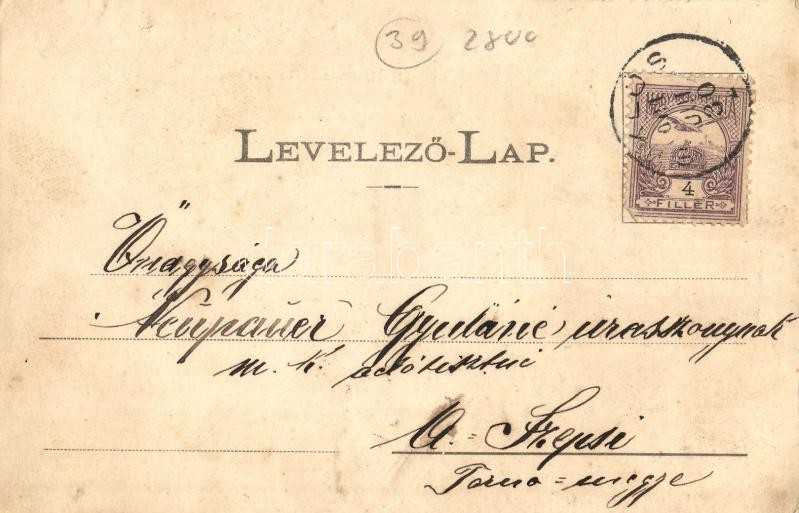 39 2800
LEVELEZŐ-LAP.
4
FILLÉR
Őnagysága
Neupauer Gyuláné úraskonynak
m. k. adótisztné
A.=Szepsi
Torna=megye
darabanth